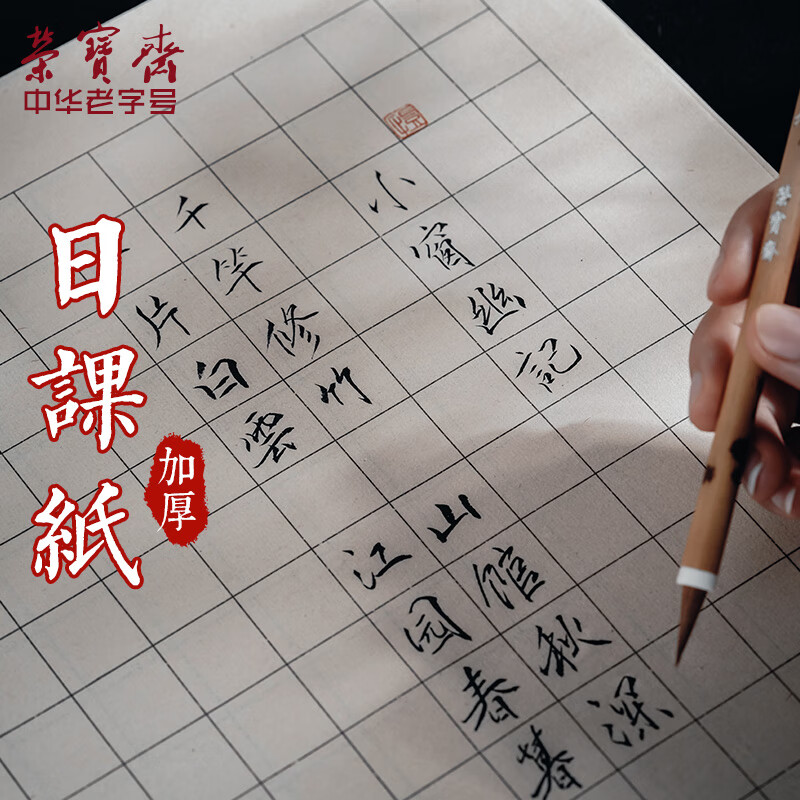 榮寶齋
中华老字号
日課紙
加厚
小窗幽記
千竿修竹
一片白雲
山館秋深
江园春暮
榮寶齋